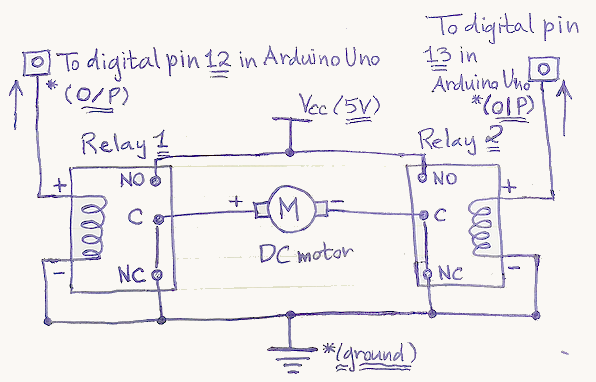 To digital pin 12 in Arduino Uno
*(O/P)
To digital pin
13 in
Arduino Uno
*(O/P)
Vcc (5V)
Relay 1
Relay 2
NO
NO
+
+
C
+
M
-
C
DC motor
-
NC
NC
-
*(ground)